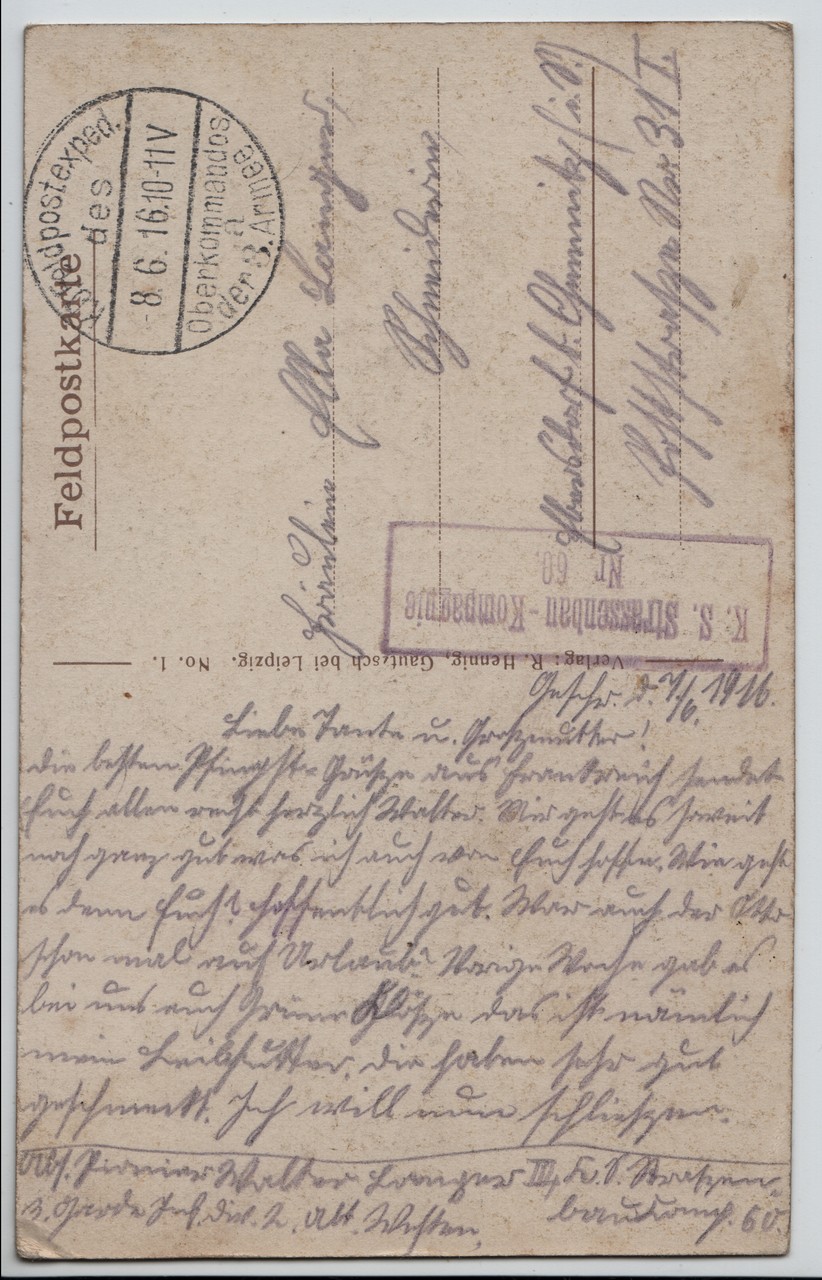 Feldpostkarte
K.S. Feldpostexped.
des
-8.6.16.10-11V
Oberkommandos
a
der 3. Armee
Fräulein Ella Langer,
Schneiderin
Ebersdorf b. Chemnitz (i. S.)
Lichtstrasze Nr 31 I.
K. S. Strassenbau-Kompagnie
Nr. 60.
Verlag: R. Hennig, Gautzsch bei Leipzig. No. 1.
Geschr. d. 7./6. 1916.
Liebe Tante u. Groszmutter!
Die besten Pfingst-Grüsze aus Frankreich sendet
Euch allen recht herzlich Walter. Mir geht es soweit
noch ganz gut was ich auch von Euch hoffe. Wie geht
es denn Euch? hoffentlich gut. War auch der Otto
schon mal auf Urlaub? Vorige Woche gab es
bei uns auch Grüne Klösze das ist nämlich
mein Leibfutter, die haben sehr gut
geschmeckt. Ich will nun schlieszen.
Abs. Pionier Walter Langer III, K. S. Straszen-
baukomp. 60.
3. Garde Inf. Div. 2. Abt. Westen,